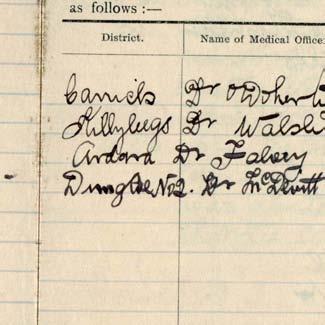 as follows :—
District. Name of Medical Office
Carrick Dr O'Doher
Killybegs Dr Walsh
Ardara Dr Falvey
Dungloe No 2. Dr McDevitt